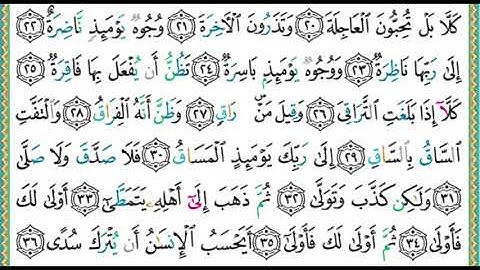 كَلَّا بَلْ تُحِبُّونَ الْعَاجِلَةَ ﴿٢٠﴾ وَتَذَرُونَ الْآخِرَةَ ﴿٢١﴾ وُجُوهٌ يَوْمَئِذٍ نَّاضِرَةٌ ﴿٢٢﴾
إِلَىٰ رَبِّهَا نَاظِرَةٌ ﴿٢٣﴾ وَوُجُوهٌ يَوْمَئِذٍ بَاسِرَةٌ ﴿٢٤﴾ تَظُنُّ أَن يُفْعَلَ بِهَا فَاقِرَةٌ ﴿٢٥﴾
كَلَّا إِذَا بَلَغَتِ التَّرَاقِيَ ﴿٢٦﴾ وَقِيلَ مَنْ ۜ رَاقٍ ﴿٢٧﴾ وَظَنَّ أَنَّهُ الْفِرَاقُ ﴿٢٨﴾ وَالْتَفَّتِ
السَّاقُ بِالسَّاقِ ﴿٢٩﴾ إِلَىٰ رَبِّكَ يَوْمَئِذٍ الْمَسَاقُ ﴿٣٠﴾ فَلَا صَدَّقَ وَلَا صَلَّىٰ
﴿٣١﴾ وَلَٰكِن كَذَّبَ وَتَوَلَّىٰ ﴿٣٢﴾ ثُمَّ ذَهَبَ إِلَىٰ أَهْلِهِ يَتَمَطَّىٰ ﴿٣٣﴾ أَوْلَىٰ لَكَ
فَأَوْلَىٰ ﴿٣٤﴾ ثُمَّ أَوْلَىٰ لَكَ فَأَوْلَىٰ ﴿٣٥﴾ أَيَحْسَبُ الْإِنسَانُ أَن يُتْرَكَ سُدًى ﴿٣٦﴾